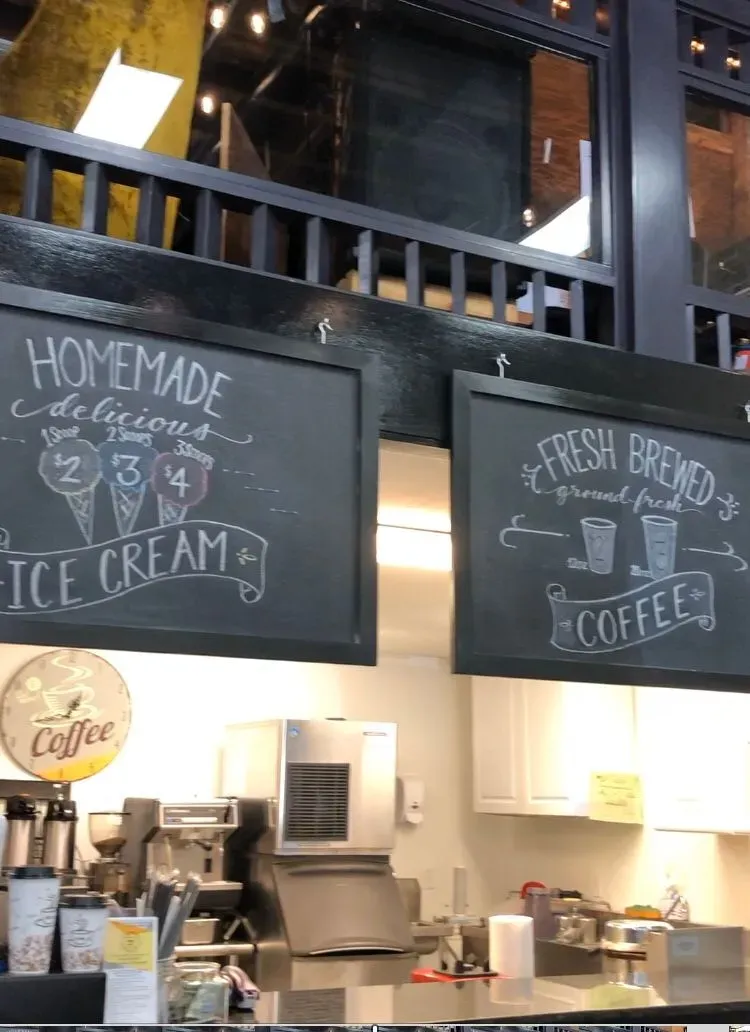 HOMEMADE
delicious
1 Scoop 2 Scoops 3 Scoops
$2 $3 $4
ICE CREAM
FRESH BREWED
ground fresh
12oz 20oz
COFFEE
Coffee